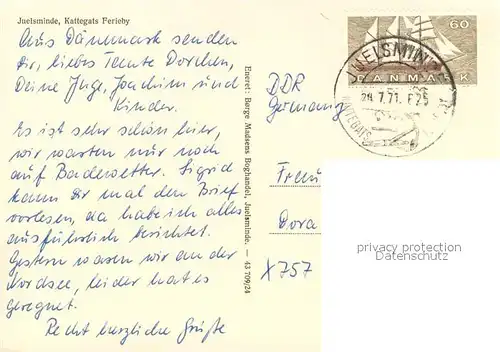 Juelsminde, Kattegats Perleby
Aus Dänemark senden
Dir, liebes Tante Dorchen,
Deine Inge, Joachim und
Kinder.
Es ist sehr schön hier,
wir warten nur noch
auf Badewetter. Sigrid
kann Dir mal den Brief
vorlesen, da habe ich alles
ausführlich berichtet.
Gestern waren wir an der
Nordsee, leider hat es
geregnet.
Recht herzliche Grüße
Eneret: Børge Madsens Boghandel, Juelsminde. — 43 709/24
60
DANMARK
JUELSMINDE
24.7.71. F25
KATTEGATS
DDR
Germany
Frau
Dora
X 757
privacy protection
Datenschutz